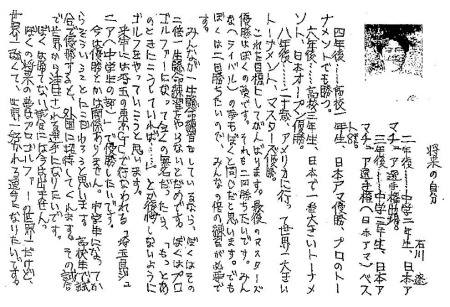 将来の自分
石川 遼
二年後……中学二年生、日本ア
マチュア選手権出場。
三年後……中学三年生、日本ア
マチュア選手権(日本アマ)ベス
ト8。
四年後……高校一年生、日本アマ優勝、プロのトー
ナメントでも勝つ。
六年後……高校三年生、日本で一番大きいトーナメ
ント、日本オープン優勝。
八年後……二十歳、アメリカに行って世界一大き
いトーナメント、マスターズ優勝。
これを目標にしてがんばります。最後のマスターズ
優勝はぼくの夢です。それも二回勝ちたいです。み
んな(ライバル)の夢もぼくと同じだと思います。でも、
ぼくは二回勝ちたいので、みんなの倍の練習が必要で
す。
みんなが一生懸命練習をしているなら、ぼくはその
二倍、一生懸命練習をやらないとだめです。ぼくはプロ
ゴルファーになって全くの無名だったら、「もっとあ
のときにこうしていれば…」と後悔しないように
ゴルフをやっていこうと思います。
来年には埼玉の東京GCで行なわれる「埼玉県ジュ
ニア(中学生の部)」で優勝したいです。
今は優勝とかは関係ありません。中学生になってか
らそういうことにこだわろうと思います。高校生で試
合で優勝すると、外国に招待してくれます。その試合で
世界から注目される選手になりたいです。
ぼくが勝てない
ぼくの将来の夢はプロゴルファーの世界一だけど、
世界一強くて、世界一好かれる選手になりたいです。